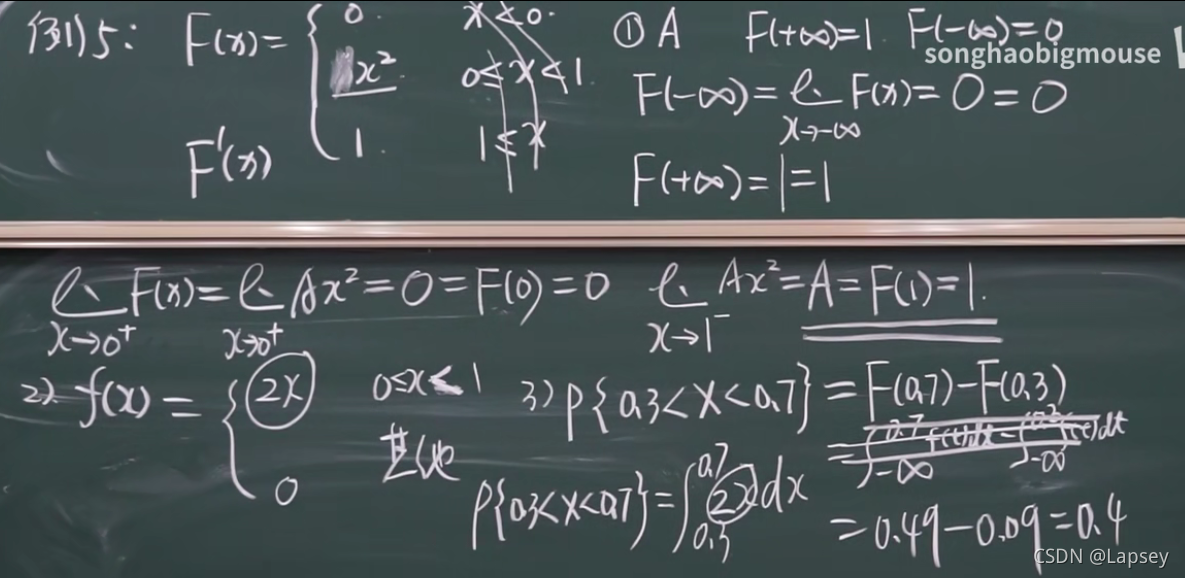 例5: F(x)= { 0. x<0.
x². 0≤x<1.
1. 1≤x
F'(x)
① A F(+∞)=1. F(-∞)=0
songhaobigmouse
F(-∞)= lim x→-∞ F(x)=0=0
F(+∞)=1=1
lim x→0⁺ F(x)= lim x→0⁺ Ax²=0=F(0)=0 lim x→1⁻ Ax²=A=F(1)=1.
2). f(x)= { 2x 0≤x<1
0 其他
3) P{0.3<X<0.7}=F(0.7)-F(0.3)
=∫-∞^0.7 f(t)dt-∫-∞^0.3 f(t)dt
P{0.3<X<0.7}=∫0.3^0.7 2xdx
=0.49-0.09=0.4
CSDN @Lapsey